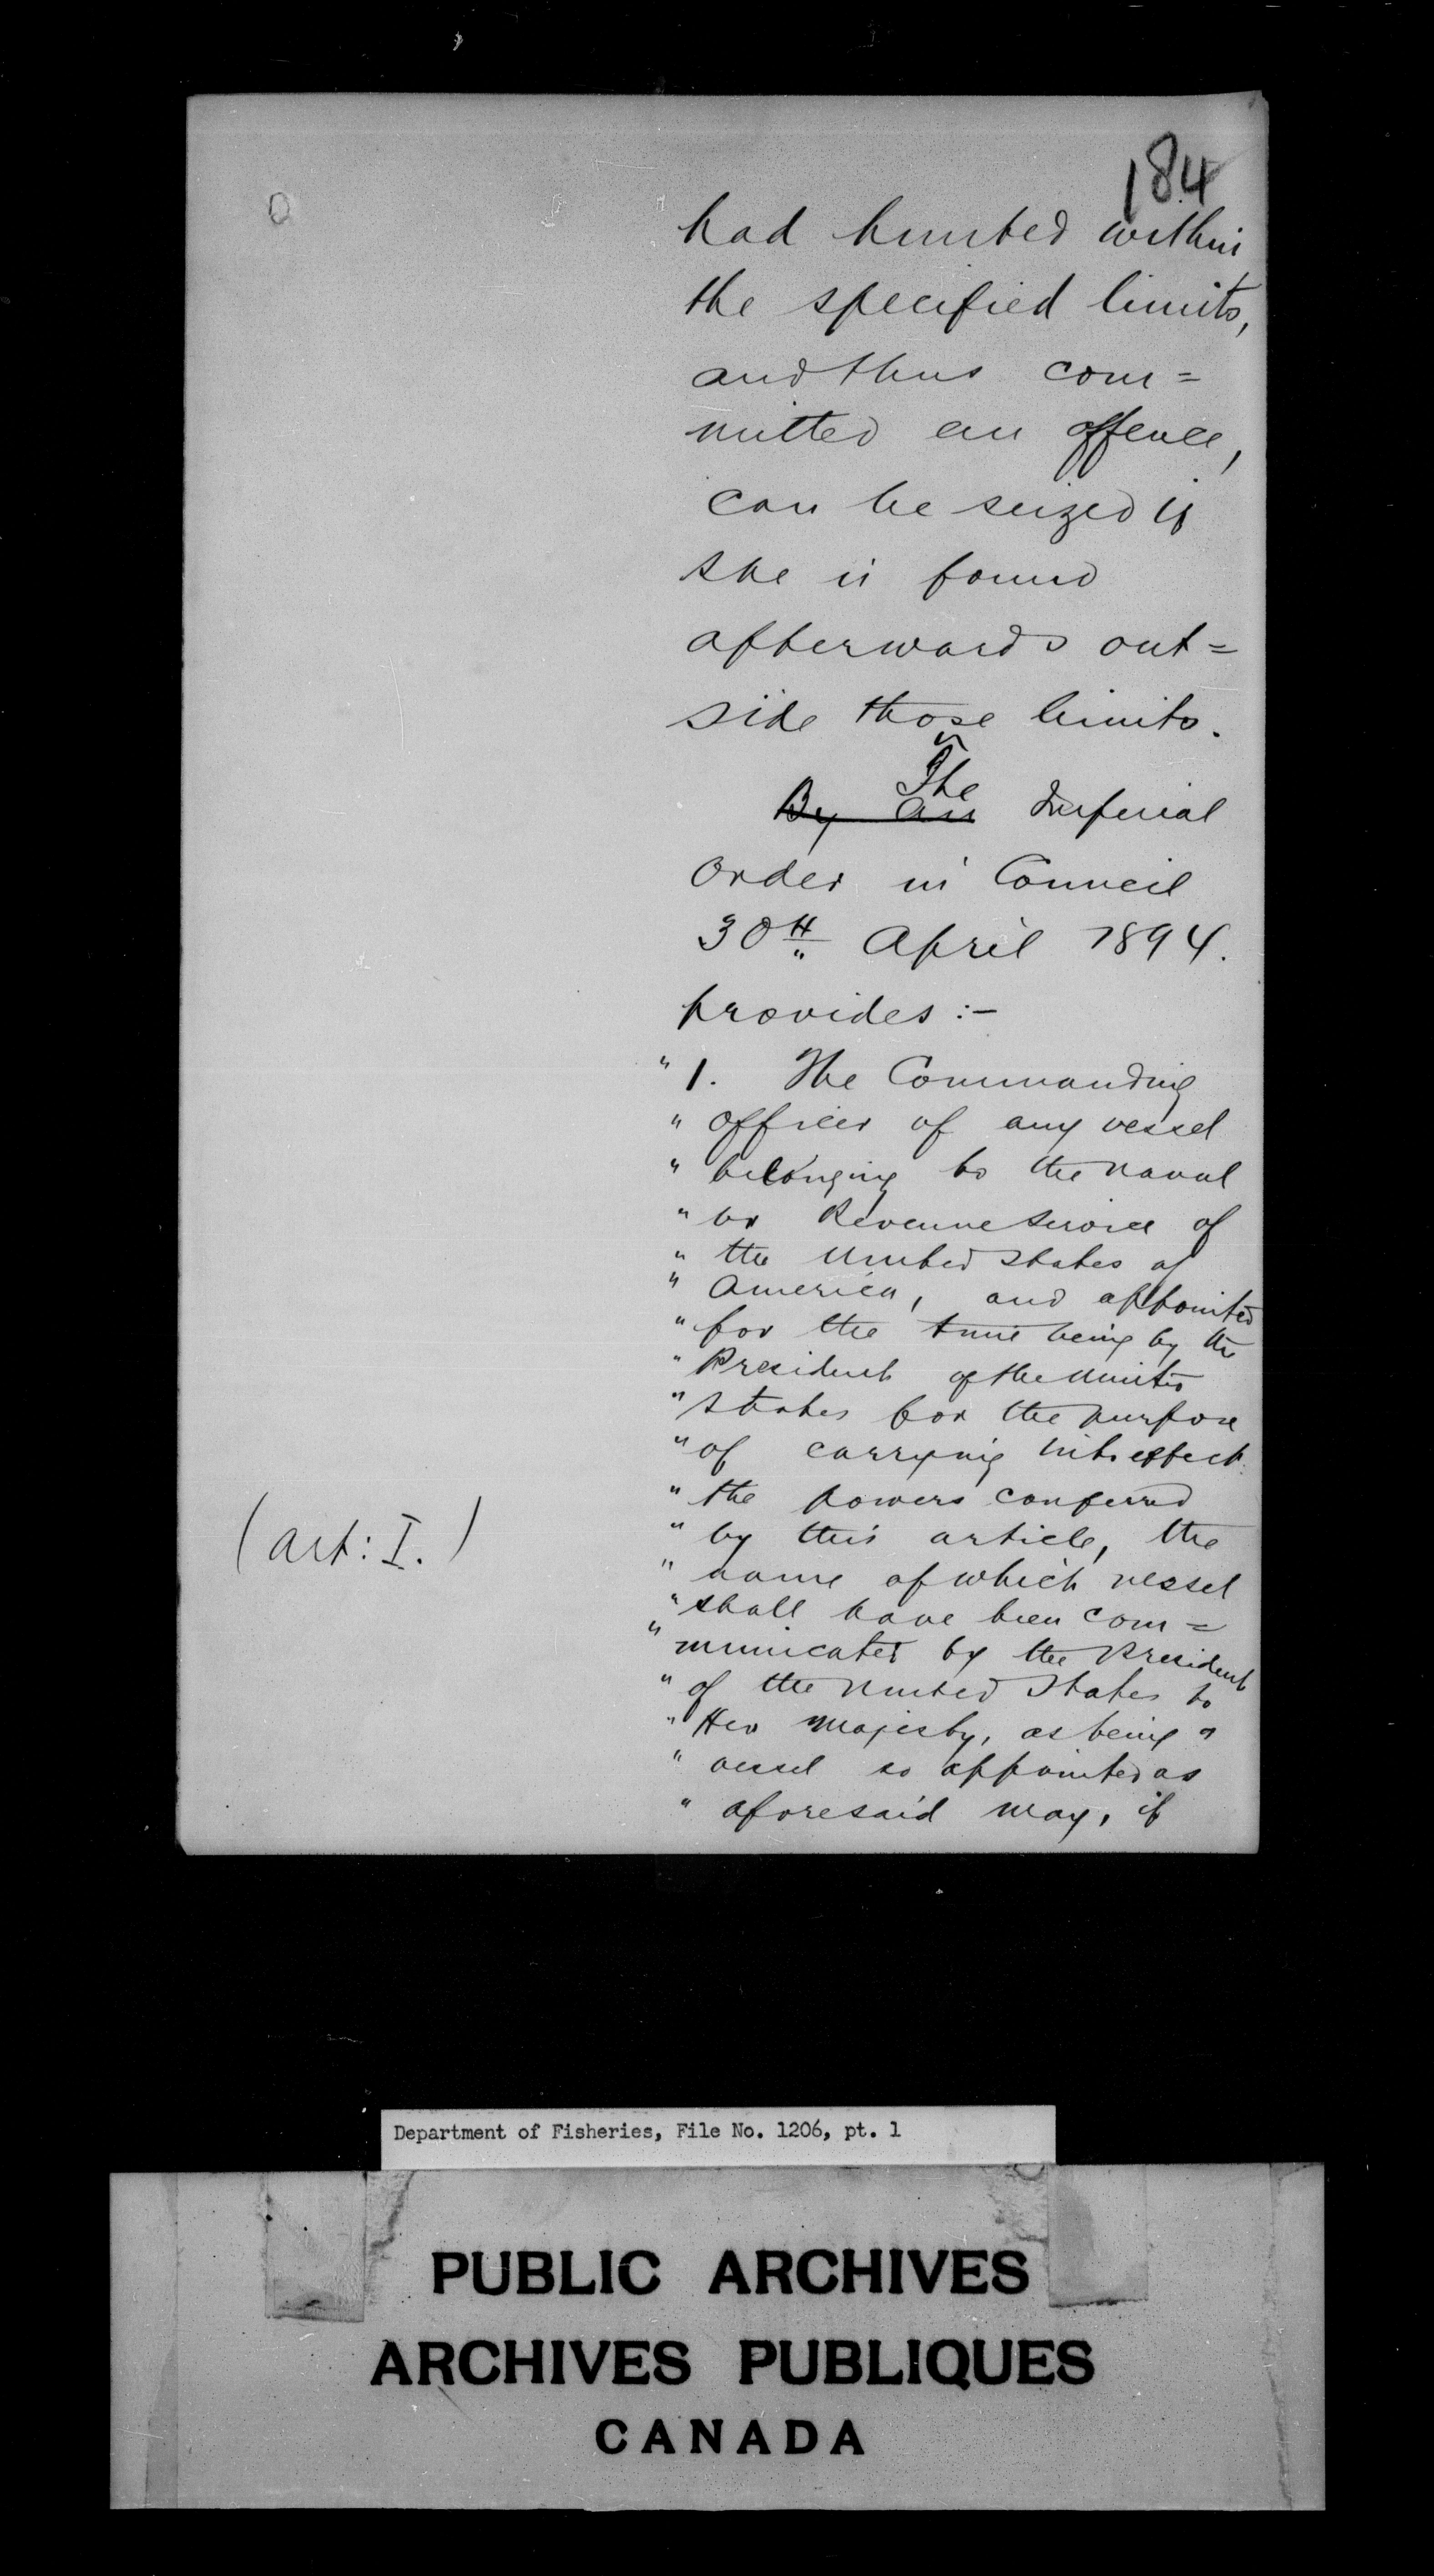 184
had hunted within
the specified limits,
and thus com=
mitted an offence,
can be seized if
she is found
afterwards out=
side those limits.
The
By an Imperial
Order in Council
30th April 1894.
provides :-
" 1. The Commanding
" officer of any vessel
" belonging to the naval
" or Revenue Service of
" the United States of
" America, and appointed
" for the time being by the
" President of the United
" States for the purpose
" of carrying into effect
" the powers conferred
" by this article, the
(Art: I.)
" name of which vessel
" shall have been com=
" municated by the President
" of the United States to
" Her Majesty, as being a
" vessel so appointed as
" aforesaid may, if
Department of Fisheries, File No. 1206, pt. 1
PUBLIC ARCHIVES
ARCHIVES PUBLIQUES
CANADA